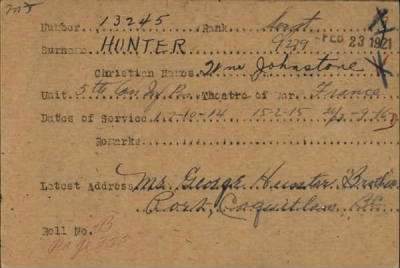 Number. 13245 Rank. Sergt
FEB 23 1921
Surname HUNTER 9239
Christian Names. Wm Johnstone
Unit. 5th Can Theatre of War. France
Dates of Service. 1-10-14 15-2-15
Remarks.
Latest Address. Mr. George Hunter. "Brother"
Port, Coquitlam B.C.
Roll No. B
Page